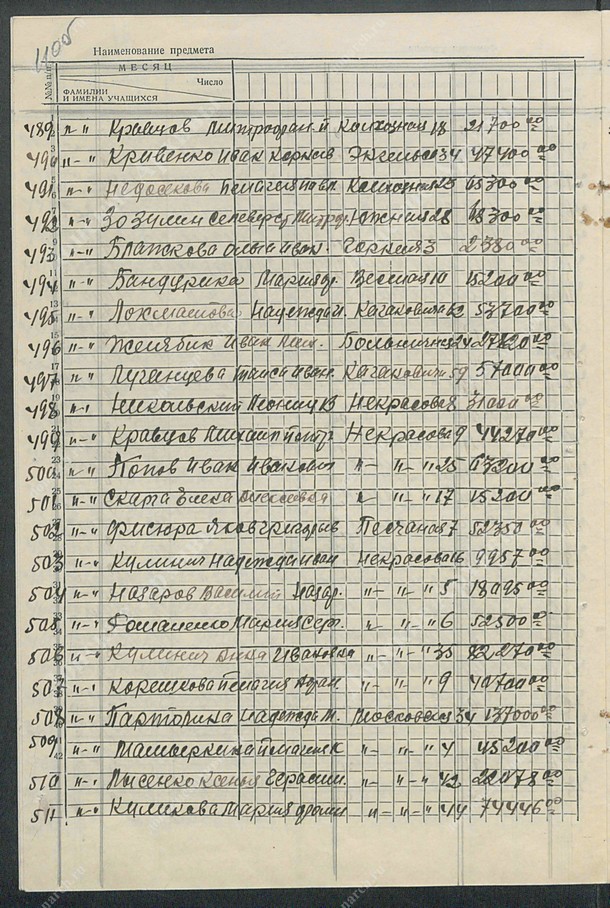 1105
Наименование предмета
№№ п/п
МЕСЯЦ
Число
ФАМИЛИИ
И ИМЕНА УЧАЩИХСЯ
489 "-" Кравцов Митрофан И Колхозная 18 21700 00
490 "-" Кривенко Иван Корнев Энгельса 34 47400 00
491 "-" Недосекова Пелагея Павл Колхозная 25 65300 00
492 "-" Зозулин Селеверст Митр Южная 28 300 00
493 "-" Блажкова Ольга Иван. Горкия 3 2380 00
494 "-" Бандурина Мария Гр. Весёлая 10 15200 00
495 "-" Локмаитова Надежда И. Кагановича 62 53700 00
496 "-" Желябик Иван Мих. Больничная 24 27820 00
497 "-" Луганцева Таиса Иван. Кагановича 59 57000 00
498 "-" Никольский Леонид В Некрасова 8 31000 00
499 "-" Кравцов Михаил Петр Некрасова 9 44270 00
500 "-" Попов Иван Иванович "-" "-" 25 63200 00
501 "-" Скарга Елена Алексеевна "-" "-" 17 15200 00
502 "-" Фисюра Яков Григорьев Песчаная 7 52350 00
503 "-" Кулинич Надежда Иван Некрасова 16 9957 00
504 "-" Назаров Василий Назар. "-" "-" 5 18095 00
505 "-" Романенко Мария Сер. "-" "-" 6 52500 00
506 "-" Кулинич Анна Ивановна "-" "-" 35 82270 00
507 "-" Корешкова Пелагия Адам. "-" "-" 9 40700 00
508 "-" Парторина Надежда М. Московская 34 137000 00
509 "-" Мамыркина Пелагия К "-" "-" 4 45200 00
510 "-" Лысенко Ксенья Герасим. "-" "-" 42 22078 00
511 "-" Куликова Мария Фроли "-" "-" 44 74446 00